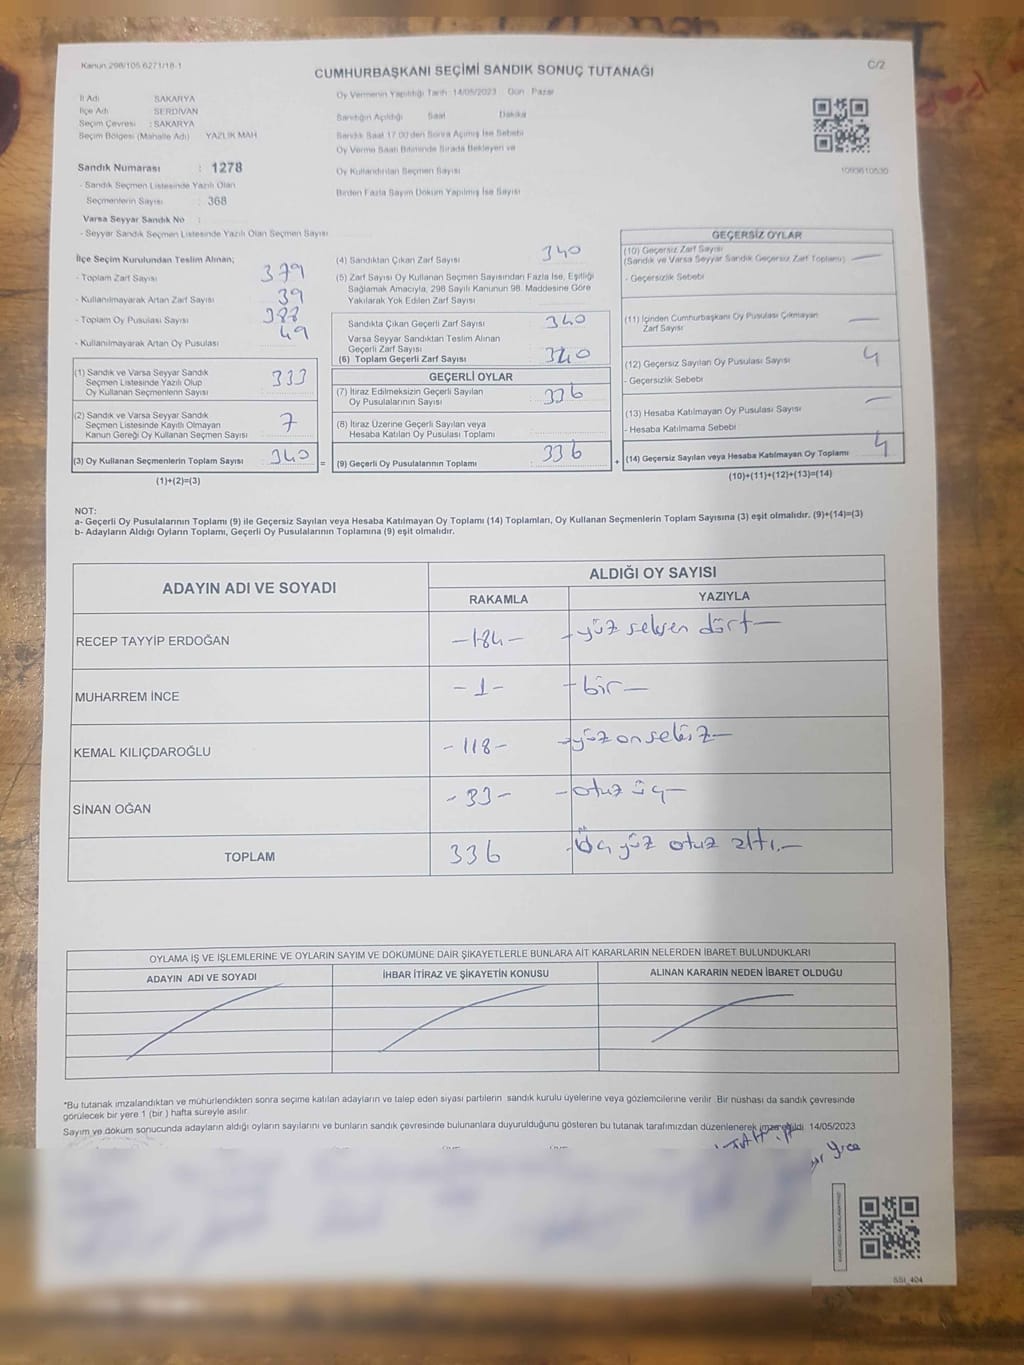 Kanun 298/105 6271/18-1
C/2
CUMHURBAŞKANI SEÇİMİ SANDIK SONUÇ TUTANAĞI
İl Adı SAKARYA
İlçe Adı SERDİVAN
Seçim Çevresi : SAKARYA
Seçim Bölgesi (Mahalle Adı) YAZLIK MAH
Oy Vermenin Yapıldığı Tarih :14/05/2023 Gün : Pazar
Sandığın Açıldığı Saat Dakika
Sandık Saat 17.00'den Sonra Açılmış İse Sebebi
Oy Verme Saati Bitiminde Sırada Bekleyen ve
Oy Kullandırılan Seçmen Sayısı
Birden Fazla Sayım Döküm Yapılmış İse Sayısı
Sandık Numarası : 1278
- Sandık Seçmen Listesinde Yazılı Olan
Seçmenlerin Sayısı : 368
Varsa Seyyar Sandık No :
- Seyyar Sandık Seçmen Listesinde Yazılı Olan Seçmen Sayısı
İlçe Seçim Kurulundan Teslim Alınan;
- Toplam Zarf Sayısı 379
- Kullanılmayarak Artan Zarf Sayısı 39
- Toplam Oy Pusulası Sayısı
- Kullanılmayarak Artan Oy Pusulası 49
(1) Sandık ve Varsa Seyyar Sandık
Seçmen Listesinde Yazılı Olup
Oy Kullanan Seçmenlerin Sayısı 333
(2) Sandık ve Varsa Seyyar Sandık
Seçmen Listesinde Kayıtlı Olmayan
Kanun Gereği Oy Kullanan Seçmen Sayısı 7
(3) Oy Kullanan Seçmenlerin Toplam Sayısı 340 =
(1)+(2)=(3)
(4) Sandıktan Çıkan Zarf Sayısı 340
(5) Zarf Sayısı Oy Kullanan Seçmen Sayısından Fazla İse, Eşitliği
Sağlamak Amacıyla, 298 Sayılı Kanunun 98. Maddesine Göre
Yakılarak Yok Edilen Zarf Sayısı
Sandıkta Çıkan Geçerli Zarf Sayısı 340
Varsa Seyyar Sandıktan Teslim Alınan
Geçerli Zarf Sayısı
(6) Toplam Geçerli Zarf Sayısı 340
GEÇERLİ OYLAR
(7) İtiraz Edilmeksizin Geçerli Sayılan
Oy Pusulalarının Sayısı 336
(8) İtiraz Üzerine Geçerli Sayılan veya
Hesaba Katılan Oy Pusulası Toplamı
(9) Geçerli Oy Pusulalarının Toplamı 336 +
GEÇERSİZ OYLAR
(10) Geçersiz Zarf Sayısı
(Sandık ve Varsa Seyyar Sandık Geçersiz Zarf Toplamı)
- Geçersizlik Sebebi
(11) İçinden Cumhurbaşkanı Oy Pusulası Çıkmayan
Zarf Sayısı
(12) Geçersiz Sayılan Oy Pusulası Sayısı 4
- Geçersizlik Sebebi
(13) Hesaba Katılmayan Oy Pusulası Sayısı
- Hesaba Katılmama Sebebi
(14) Geçersiz Sayılan veya Hesaba Katılmayan Oy Toplamı 4
(10)+(11)+(12)+(13)=(14)
NOT:
a- Geçerli Oy Pusulalarının Toplamı (9) ile Geçersiz Sayılan veya Hesaba Katılmayan Oy Toplamı (14) Toplamları, Oy Kullanan Seçmenlerin Toplam Sayısına (3) eşit olmalıdır. (9)+(14)=(3)
b- Adayların Aldığı Oyların Toplamı, Geçerli Oy Pusulalarının Toplamına (9) eşit olmalıdır.
ADAYIN ADI VE SOYADI
ALDIĞI OY SAYISI
RAKAMLA YAZIYLA
RECEP TAYYİP ERDOĞAN -184- -yüz seksen dört-
MUHARREM İNCE -1- -bir-
KEMAL KILIÇDAROĞLU -118- -yüz on sekiz-
SİNAN OĞAN -33- -otuz üç-
TOPLAM 336 -Üç yüz otuz altı-
OYLAMA İŞ VE İŞLEMLERİNE VE OYLARIN SAYIM VE DÖKÜMÜNE DAİR ŞİKAYETLERLE BUNLARA AİT KARARLARIN NELERDEN İBARET BULUNDUKLARI
ADAYIN ADI VE SOYADI İHBAR İTİRAZ VE ŞİKAYETİN KONUSU ALINAN KARARIN NEDEN İBARET OLDUĞU
*Bu tutanak imzalandıktan ve mühürlendikten sonra seçime katılan adayların ve talep eden siyasi partilerin sandık kurulu üyelerine veya gözlemcilerine verilir. Bir nüshası da sandık çevresinde
görülecek bir yere 1 (bir ) hafta süreyle asılır.
Sayım ve döküm sonucunda adayların aldığı oyların sayılarını ve bunların sandık çevresinde bulunanlara duyurulduğunu gösteren bu tutanak tarafımızdan düzenlenerek imza edildi. 14/05/2023